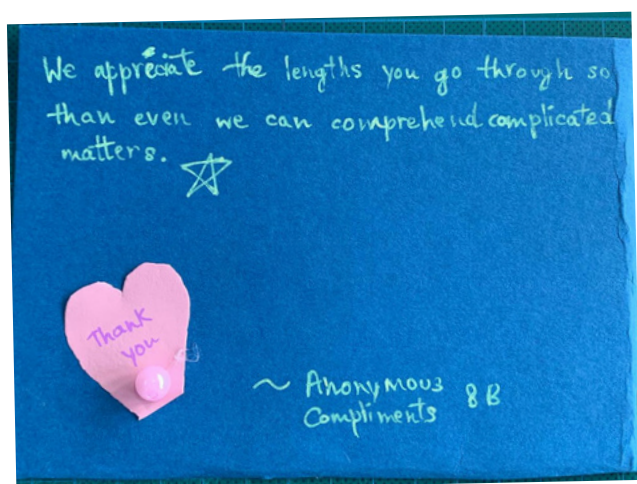 We appreciate the lengths you go through so
than even we can comprehend complicated
matters.
Thank
you
~ Anonymous 8B
Compliments